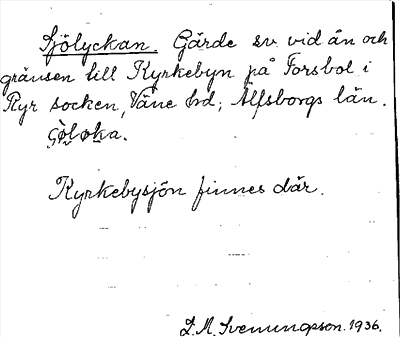 Sjölyckan. Gärde sv. vid ån och
gränsen till Kyrkebyn på Forsbol i
Ryr socken, Väne hd; Älfsborgs län.
Kyrkebysjön finnes där.
1936.